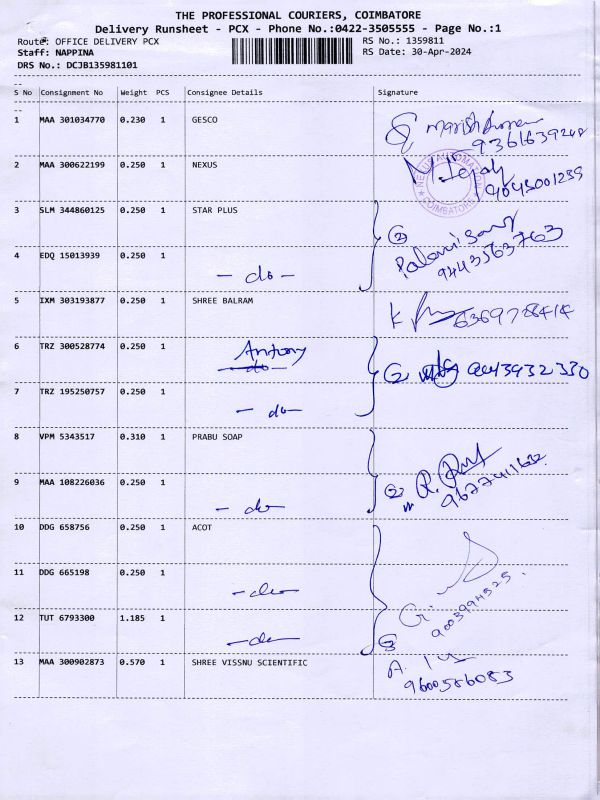 THE PROFESSIONAL COURIERS, COIMBATORE
Delivery Runsheet - PCX - Phone No.:0422-3505555 - Page No.:1
Route: OFFICE DELIVERY PCX
RS No.: 1359811
Staff: NAPPINA
RS Date: 30-Apr-2024
DRS No.: DCJB135981101
S No Consignment No Weight PCS Consignee Details Signature
1 MAA 301034770 0.230 1 GESCO
2 MAA 300622199 0.250 1 NEXUS
COIMBATORE
3 SLM 344860125 0.250 1 STAR PLUS
② Palanisamy
9443563763
4 EDQ 15013939 0.250 1 - do -
5 IXM 303193877 0.250 1 SHREE BALRAM K
6 TRZ 300528774 0.250 1 Antony
- do -
7 TRZ 195250757 0.250 1 - do -
8 VPM 5343517 0.310 1 PRABU SOAP
9 MAA 108226036 0.250 1 - do -
10 DDG 658756 0.250 1 ACOT
11 DDG 665198 0.250 1 - do -
12 TUT 6793300 1.185 1 - do -
③
13 MAA 300902873 0.570 1 SHREE VISSNU SCIENTIFIC
9600586083